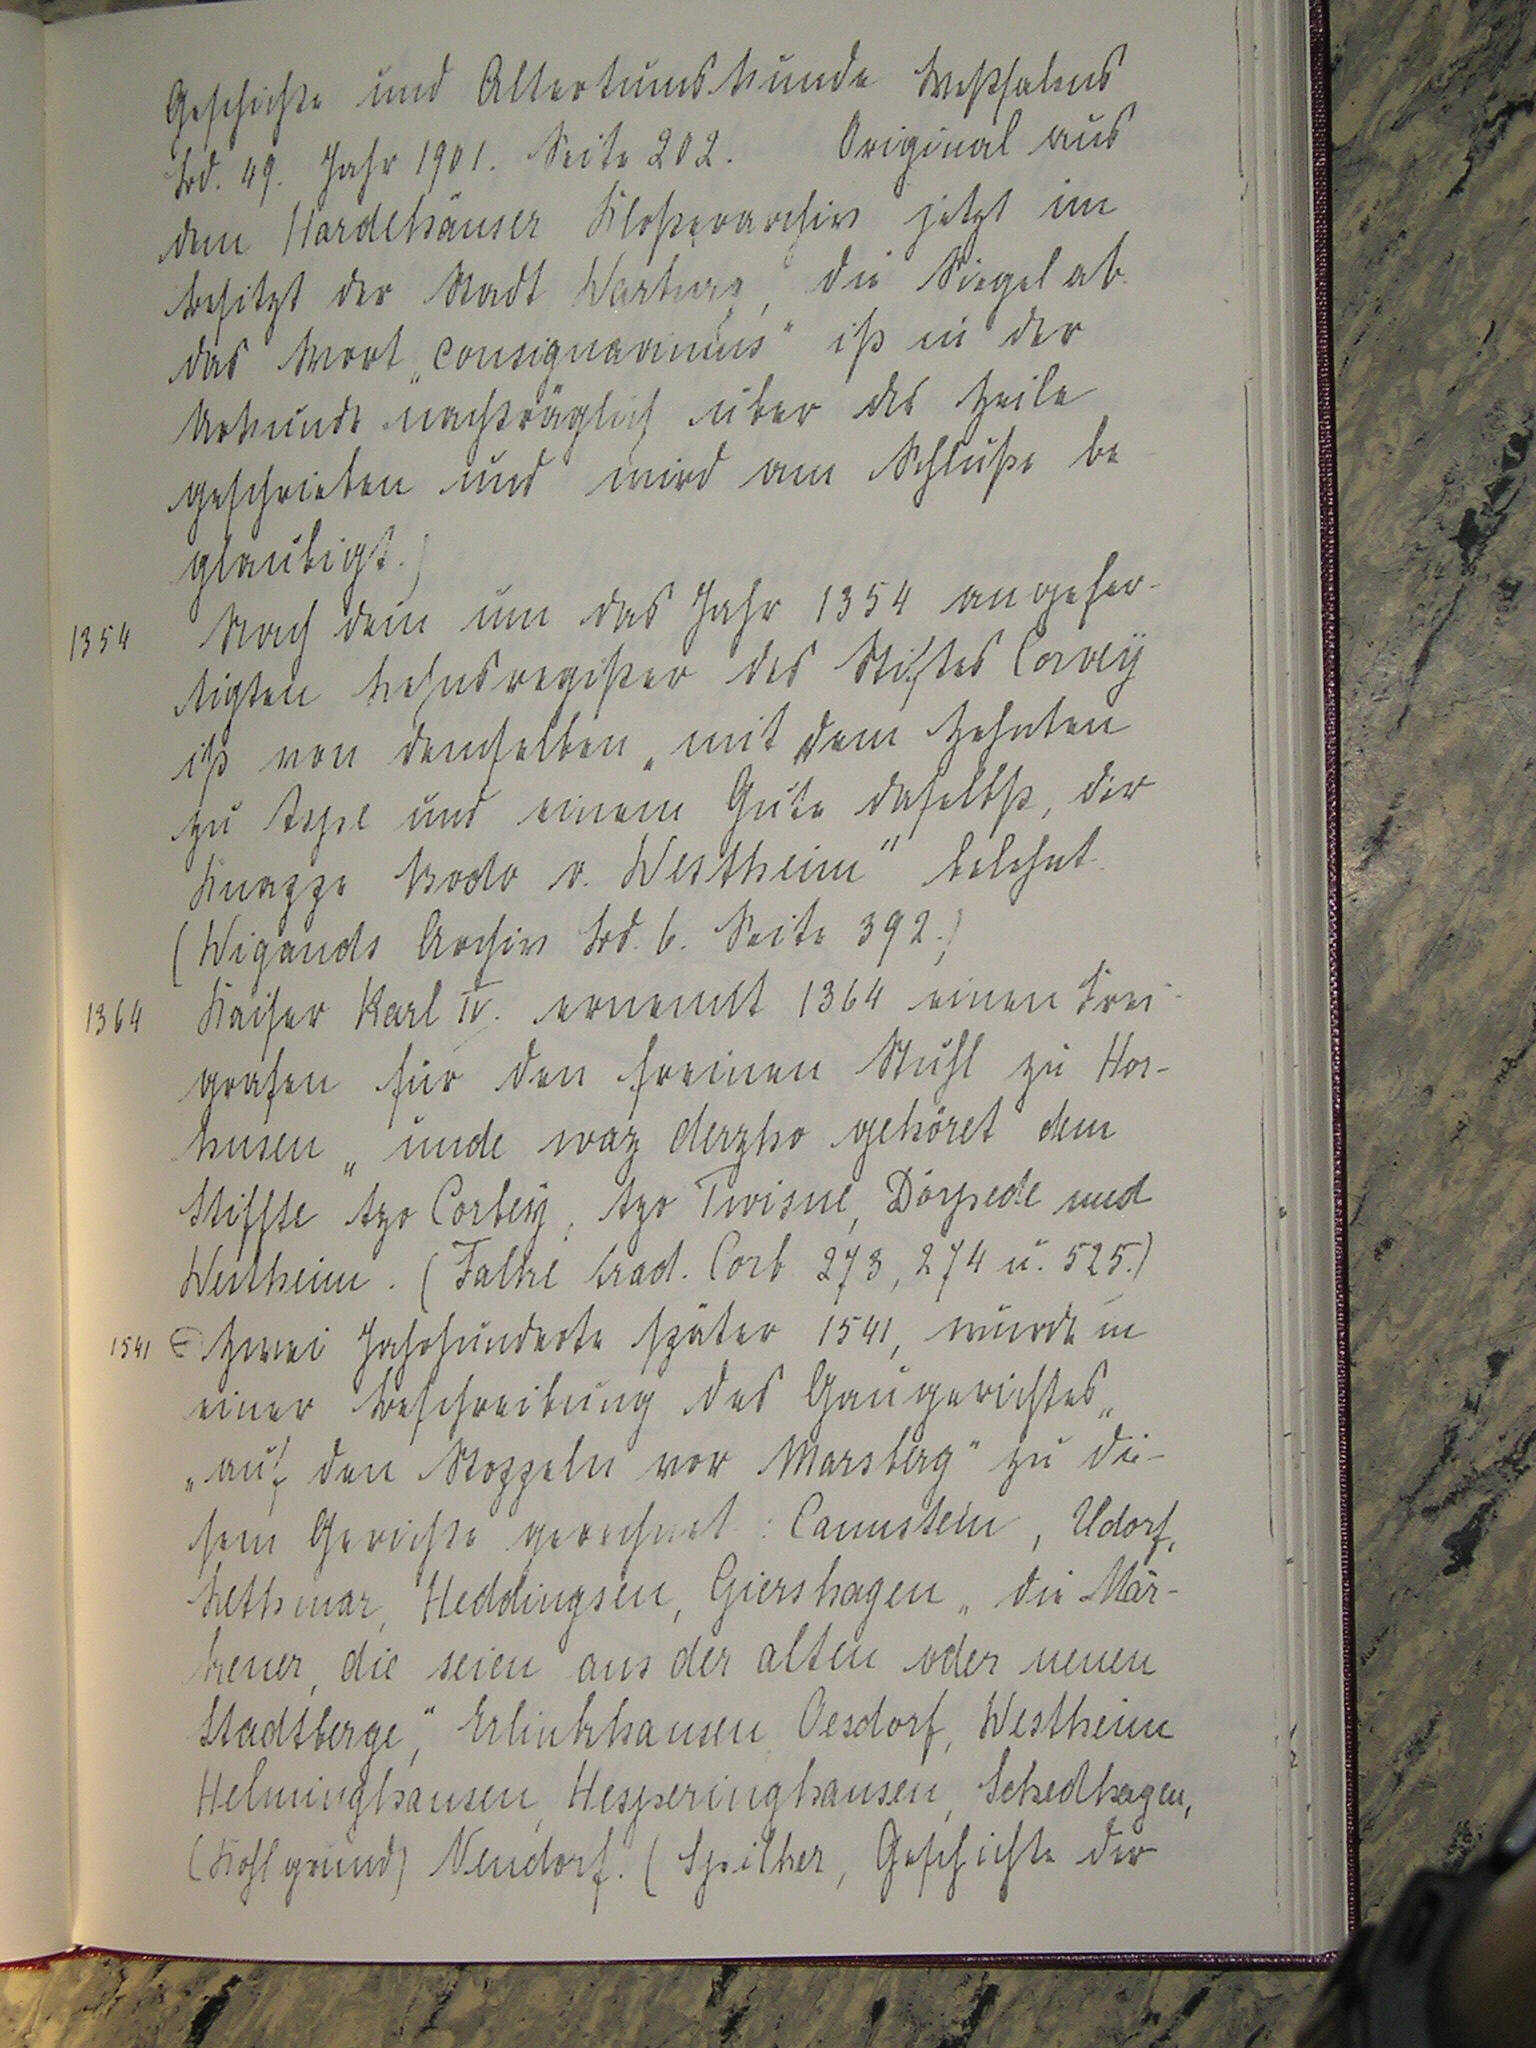 Geschichte und Altertumskunde Westfalens
Bd. 49. Jahr 1901. Seite 202. Original aus
dem Hardehäuser Klosterarchiv jetzt im
Besitzt der Stadt Warburg, die Siegel ab.
das Wort „consignavimus" ist in der
Urkunde nachträglich über die Zeile
geschrieben und wird am Schluße be-
glaubigt.)
1354 Nach dem um das Jahr 1354 angefer-
tigten Lehnsregister des Stiftes Corvey
ist von demselben „mit dem Zehnten
zu Aspe und einem Gute daselbst, der
Knappe Bodo v. Westheim" belehnt.
(Wigands Archiv Bd. 6. Seite 392.)
1364 Kaiser Karl IV. ernennt 1364 einen Frei-
grafen für den freien Stuhl zu Hor-
husen „unde waz derzho gehöret dem
Stiffte tzo Corbey, tzo Twisne, Dörpede und
Westheim. (Falke trad. Corb 273, 274 u. 525.)
1541 Zwei Jahrhunderte später 1541, wurde in
einer Beschreibung des Gaugerichtes „
„auf den Stoppeln vor Marsberg" zu die-
sem Gerichte gerechnet: Canstein, Udorf,
Lethmar, Heddingsen, Giershagen „die Mär-
kener, die seien aus der alten oder neuen
Stadtberge," Erlinkhausen, Oesdorf, Westheim
Helminghausen, Hesperinghausen, Schedhagen,
(Kohlgrund) Nendorf. (Spilker, Geschichte der